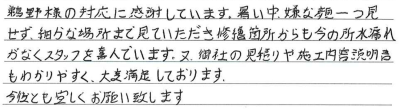 鵜野様の対応に感謝しています。暑い中、嫌な顔一つ見
せず、細かな場所まで見ていただき修復箇所からも今の所水漏れ
がなくスタッフを喜んでいます。又、御社の見積りや施工内容説明書
もわかりやすく、大変満足しております。
今後とも宜しくお願い致します